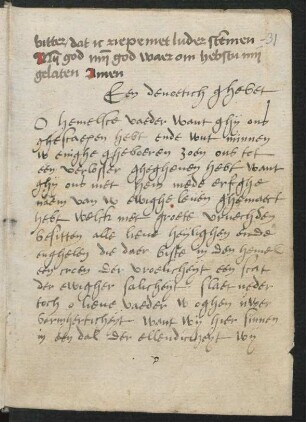 bitter dat ic riepe met luder stemen
Mij god mij god waer om hebstu mij
gelaten Amen
31
Een devoetich ghebet
O hemelsce vaeder want ghij ons
ghescaepen hebt ende wut minnen
w eenighe gheboeren zoen ons tot
een verlosser ghegheuen hebt want
ghij ons met hem mede erfghe
naem van w ewighe leuen ghemaect
hebt welck met groete vruechden
besitten alle lieue heijlighen ende
enghelen die daer bijste in den hemel
een croen der vroelicheijt een scat
der ewigher salicheijt slaet neder
toch o lieue vaeder w oghen uwer
bermherticheijt want wij hier sinnen
in een dal der ellendicheijt wij